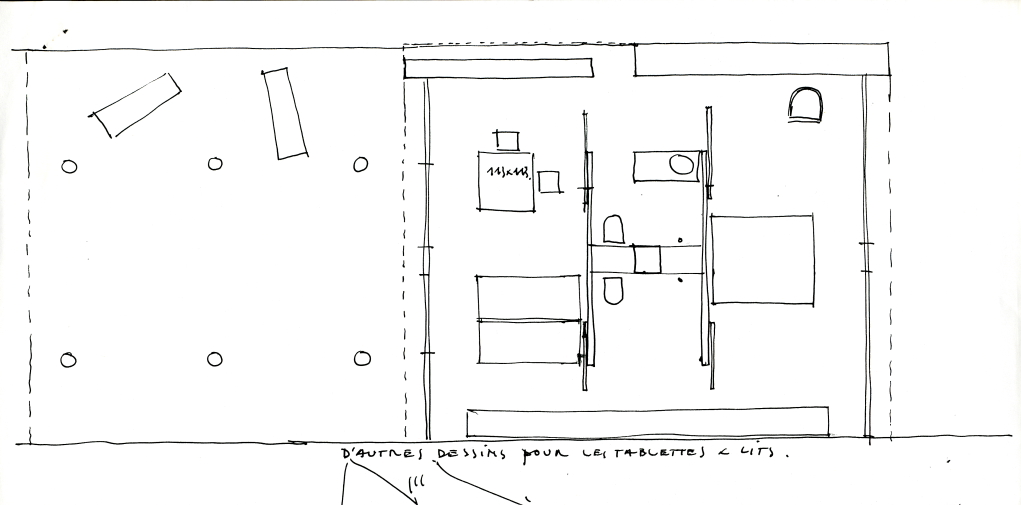 D'AUTRES DESSINS POUR LES TABLETTES & LITS.